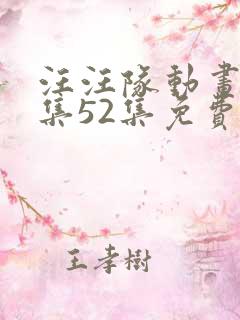 汪汪隊動畫
集52集免費
王孝樹